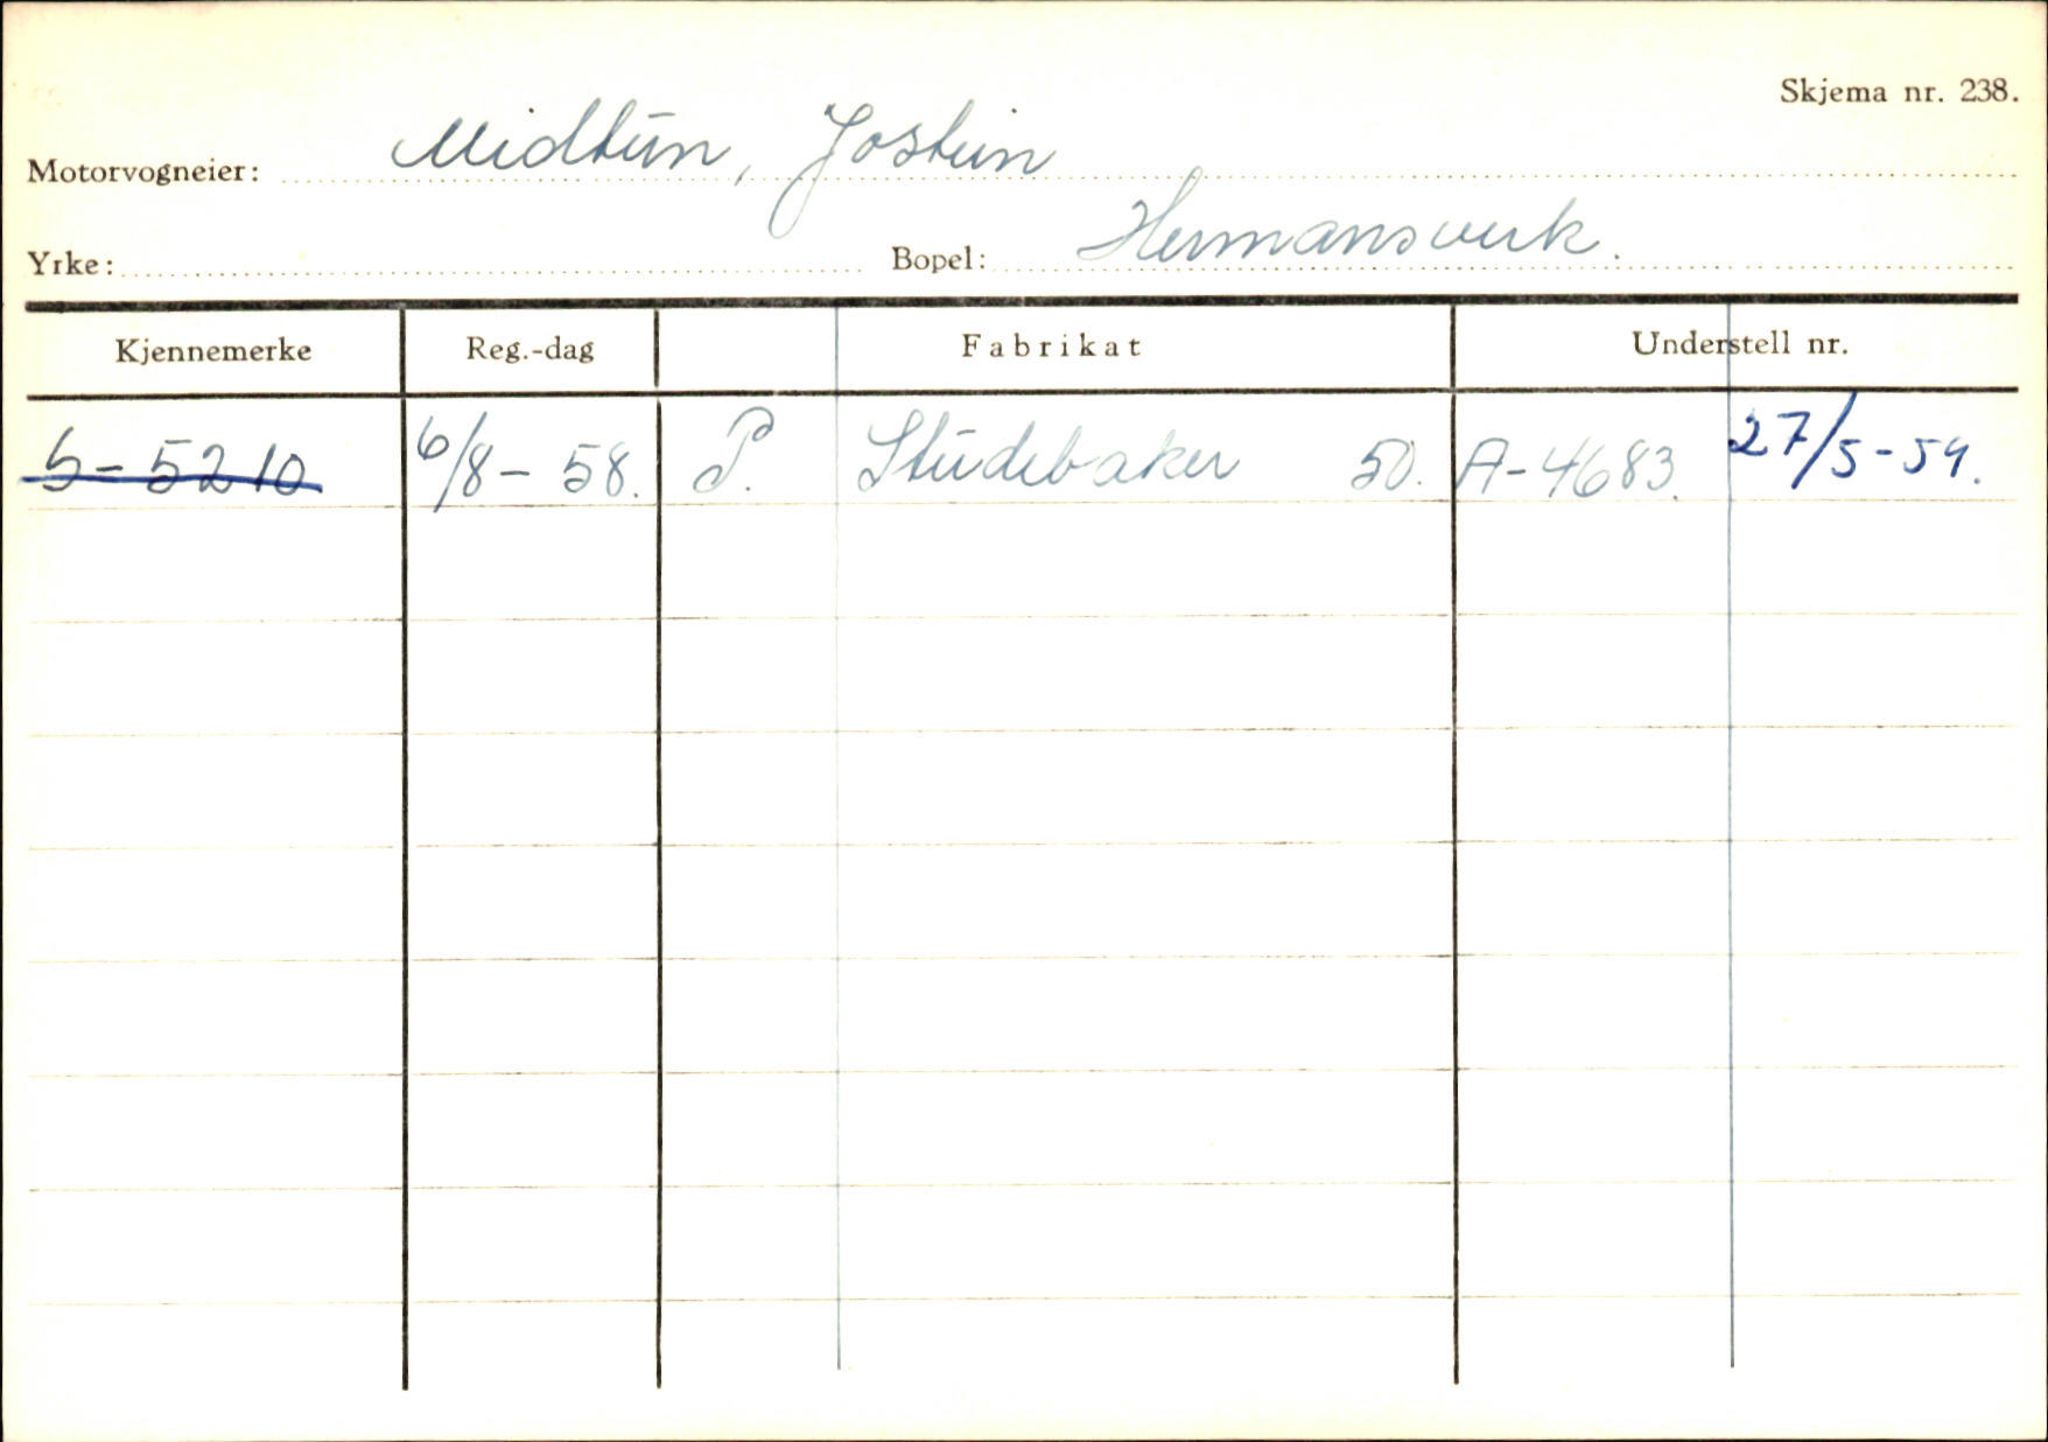 Skjema nr. 238.
Motorvogneier: Midtun, Jostein
Yrke: Bopel: Hermansverk.
Kjennemerke Reg.-dag Fabrikat Understell nr.
S-5210 6/8-58. P. Studebaker 50. A-4683. 27/5-59.